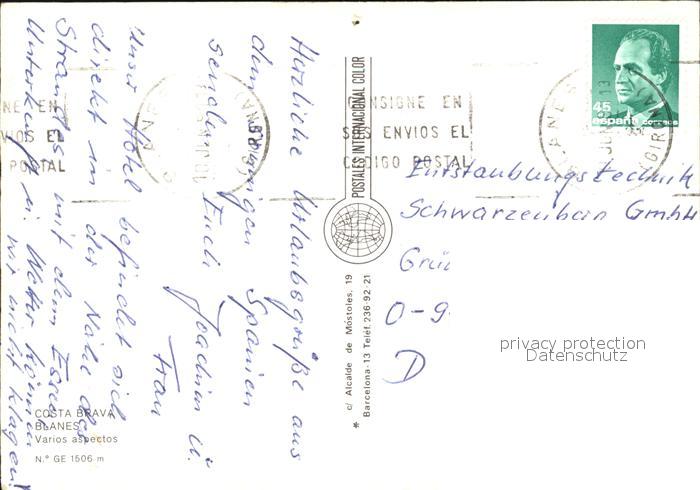 Herzliche Urlaubsgrüße aus
dem sonnigen Spanien
senden Euch Joachim u.
Frau
Unser Hotel befindet sich
direkt in der Nähe des
Strandes mit dem Essen
Unterkunft u. Wetter können
wir nicht klagen!
COSTA BRAVA
BLANES
Varios aspectos
N.° GE 1506-m
POSTALES INTERNACIONAL COLOR
* c/ Alcalde de Móstoles, 19
Barcelona-13 Teléf. 236-92-21
CONSIGNE EN
SUS ENVIOS EL
CODIGO POSTAL
NE EN
VIOS EL
POSTAL
BLANES
(GIRONA)
45
españa correos
Entstaubungstechnik
Schwarzenban GmbH
Grü
O-9
D
privacy protection
Datenschutz